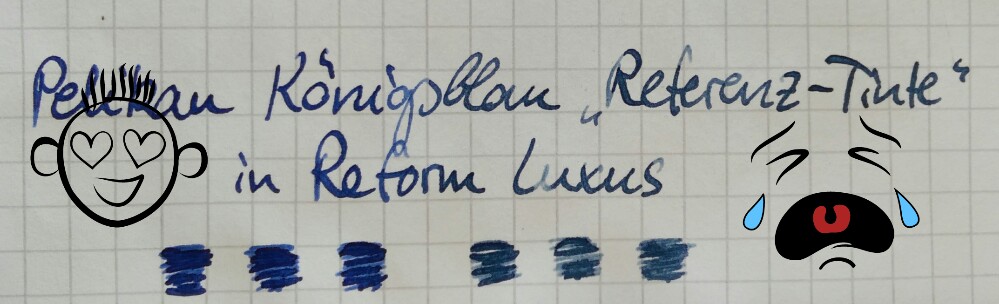 Pelikan Königsblau „Referenz-Tinte“
in Reform Luxus